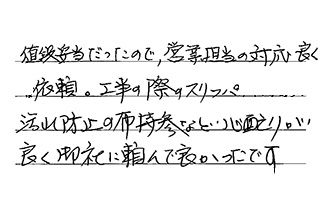 値段妥当だったので,営業担当の対応も良く
依頼。工事の際のスリッパ..........
汚れ防止の布持参などいい心配りが
良く御社に頼んで良かったです